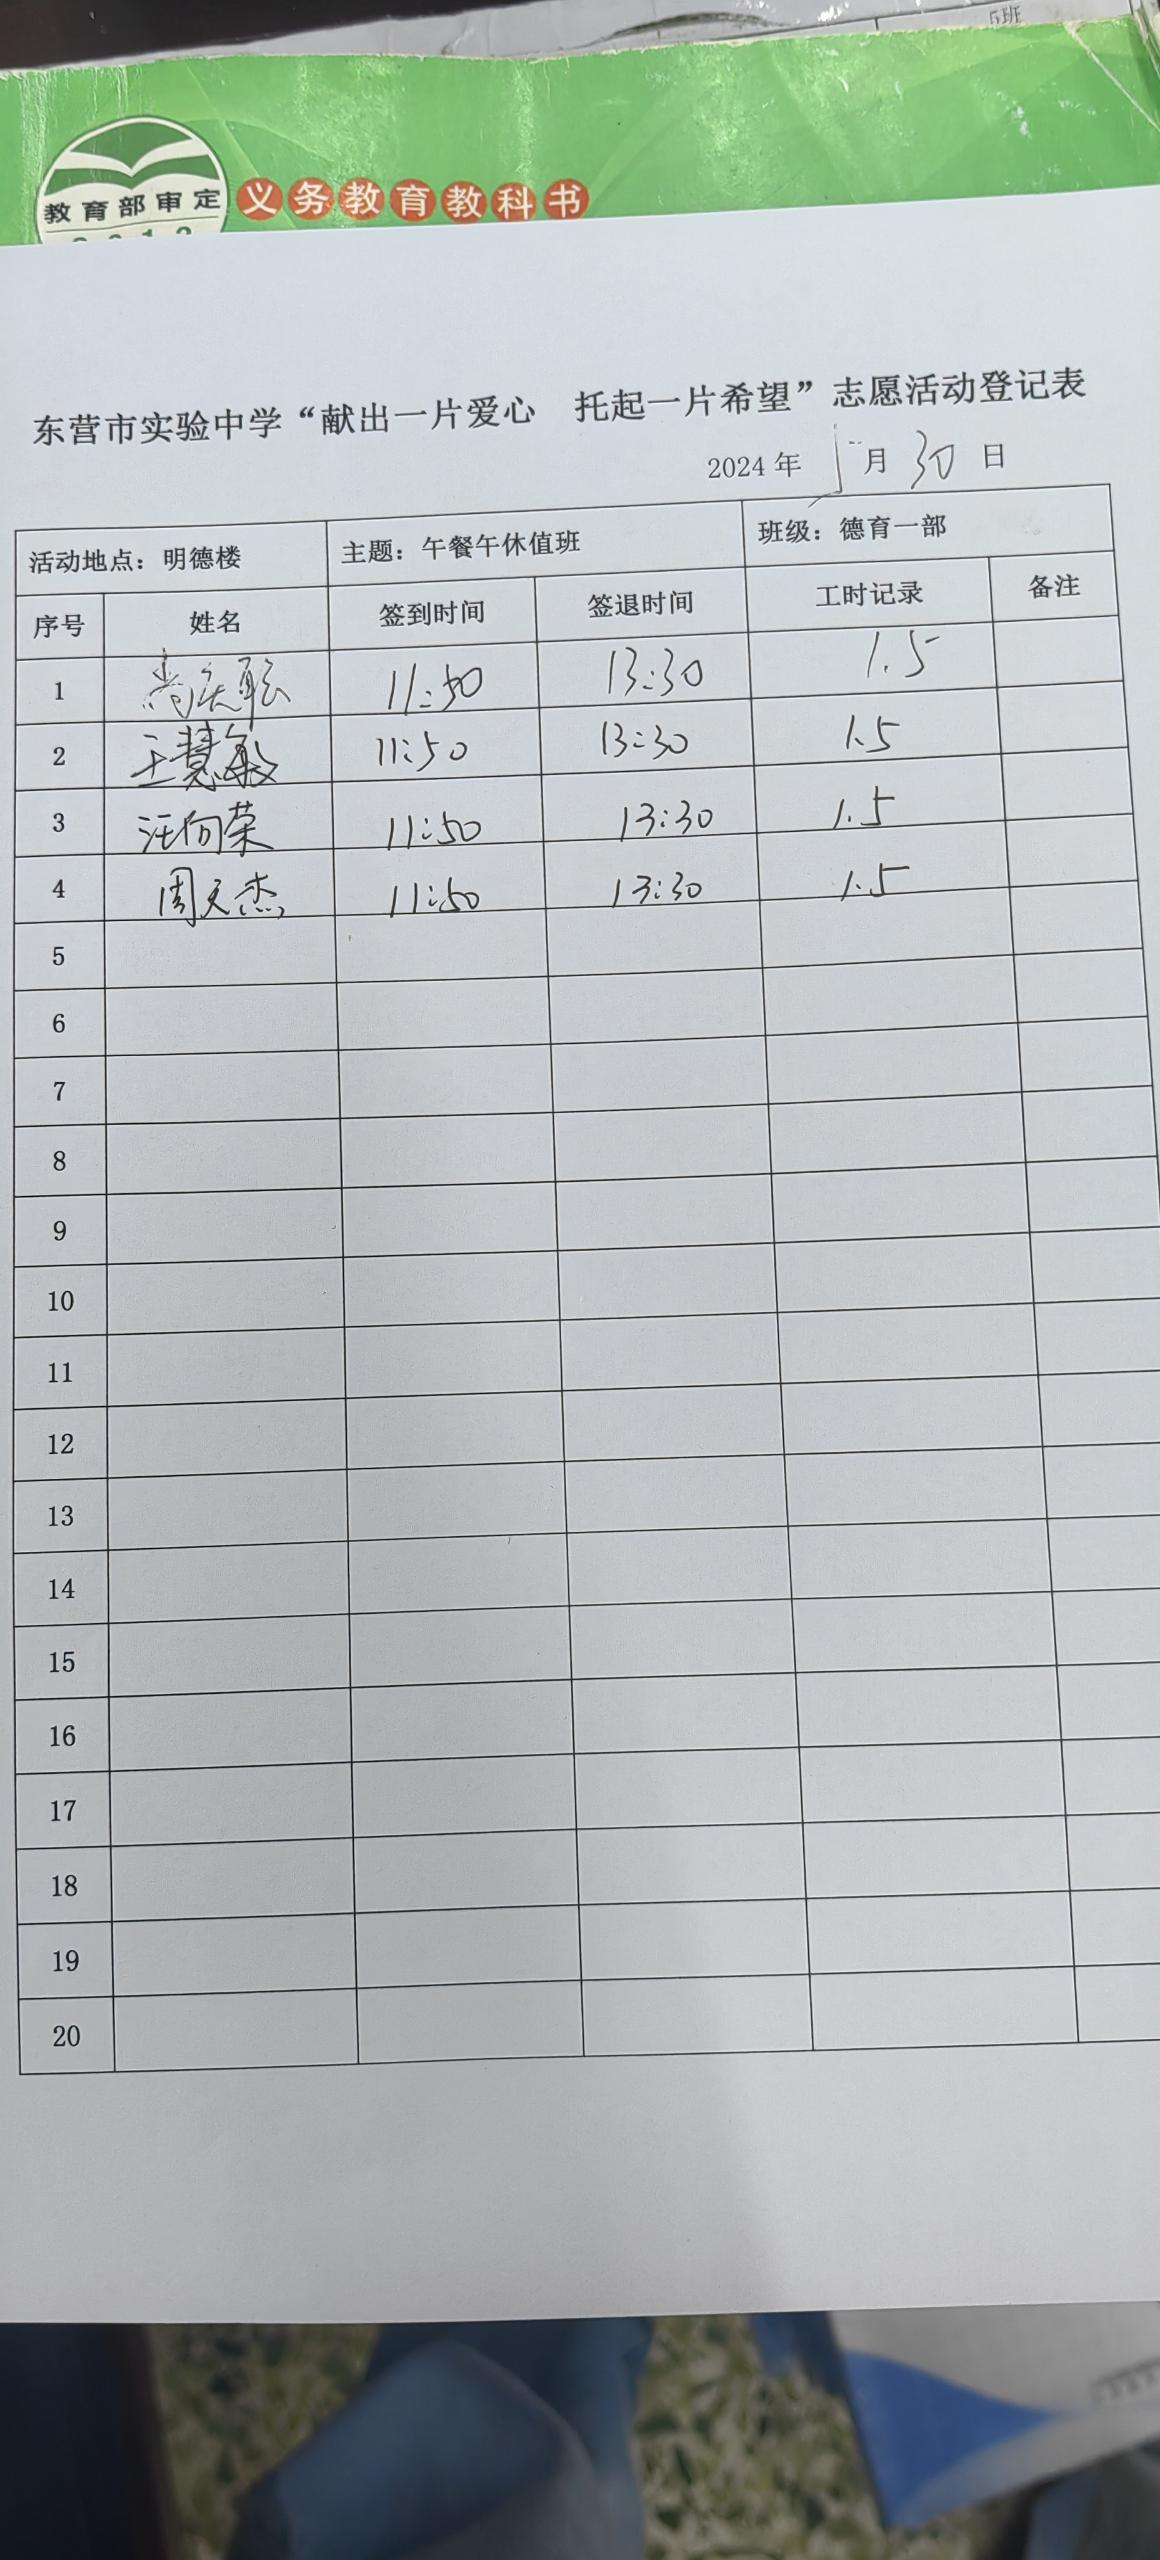 5班
教育部审定
2013
义务教育教科书
东营市实验中学“献出一片爱心 托起一片希望”志愿活动登记表
2024年 5月 30日
活动地点：明德楼 主题：午餐午休值班 班级：德育一部
序号 姓名 签到时间 签退时间 工时记录 备注
1 11:50 13:30 1.5
2 王慧敏 11:50 13:30 1.5
3 汪向荣 11:50 13:30 1.5
4 周天杰 11:50 13:30 1.5
5
6
7
8
9
10
11
12
13
14
15
16
17
18
19
20